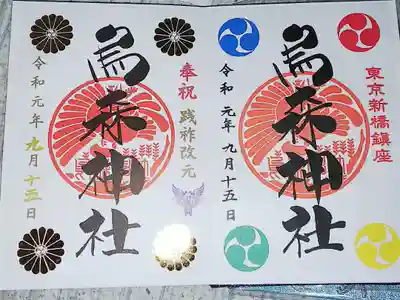 奉祝 践祚改元
烏森神社
令和元年九月十五日
東京新橋鎮座
烏森神社
令和元年九月十五日